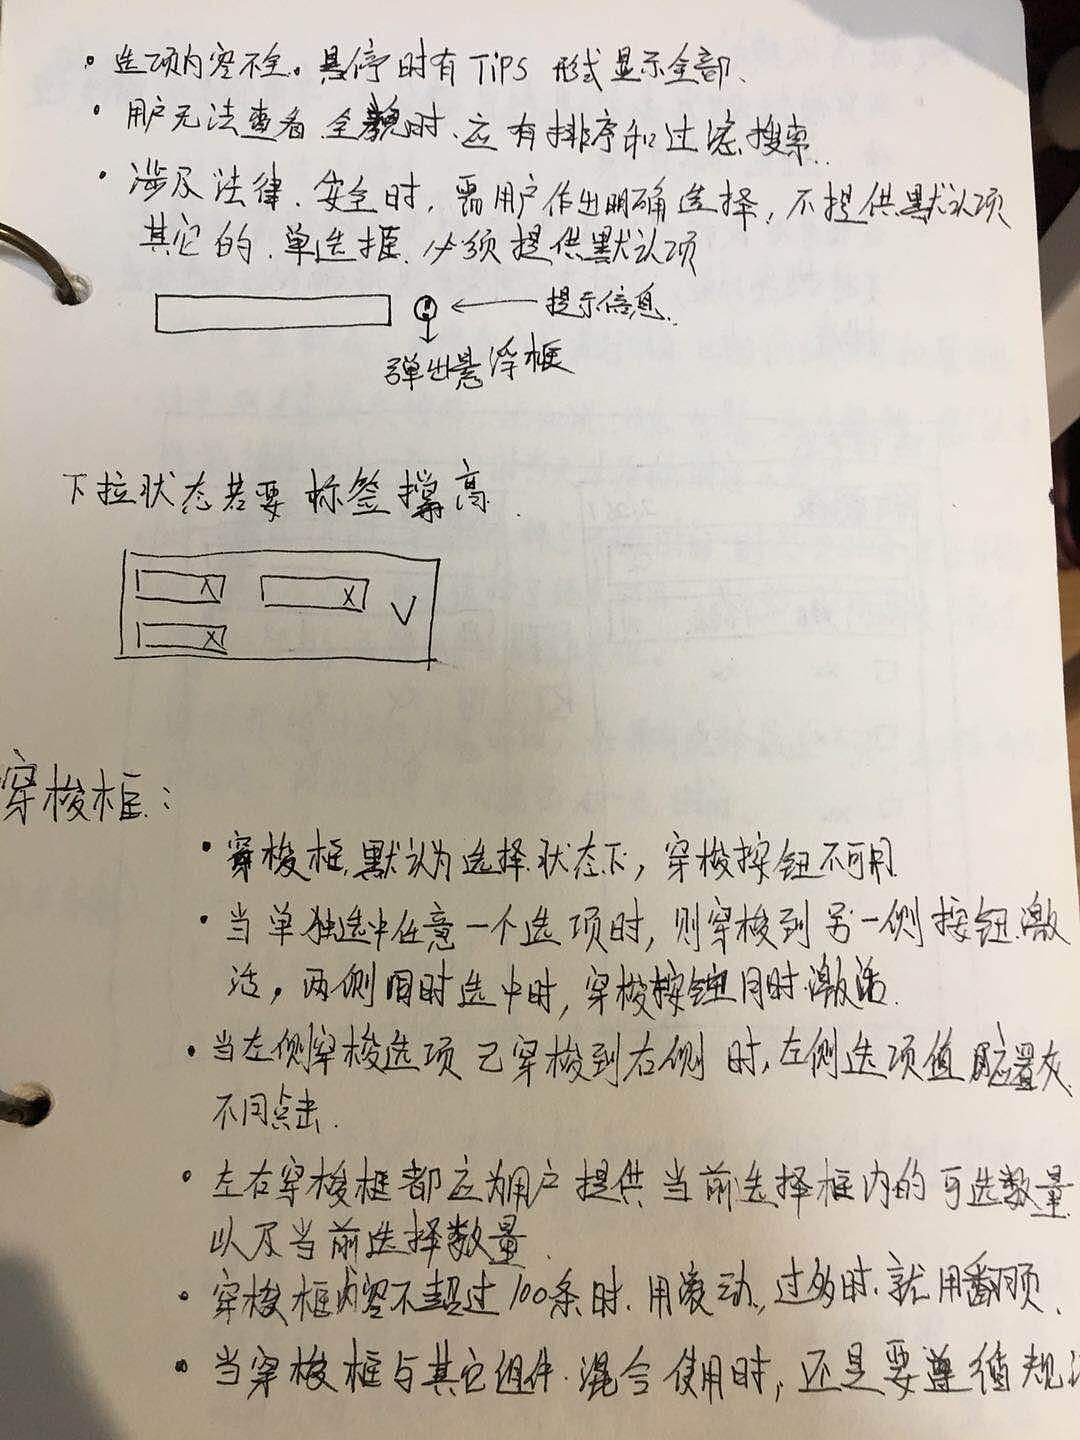 · 选项内容不全。悬停时有TIPS形式显示全部、
· 用户无法查看全貌时、应有排序和过滤搜索.
· 涉及法律、安全时，需用户作出明确选择，不提供默认项
其它的、单选框、必须提供默认项
提示信息.
弹出悬浮框
下拉状态若要标签撑高.
穿梭框：
· 穿梭框,默认为选择状态下，穿梭按钮不可用
· 当单独选中任意一个选项时，则穿梭到另一侧按钮激
活，两侧同时选中时，穿梭按钮同时激活.
· 当左侧穿梭选项已穿梭到右侧时,左侧选项值应置灰
不同点击.
· 左右穿梭框都应为用户提供当前选择框内的可选数量
以及当前选择数量.
· 穿梭框内容不超过100条时.用滚动,过多时.就用翻页.
· 当穿梭框与其它组件.混合使用时，还是要遵循规